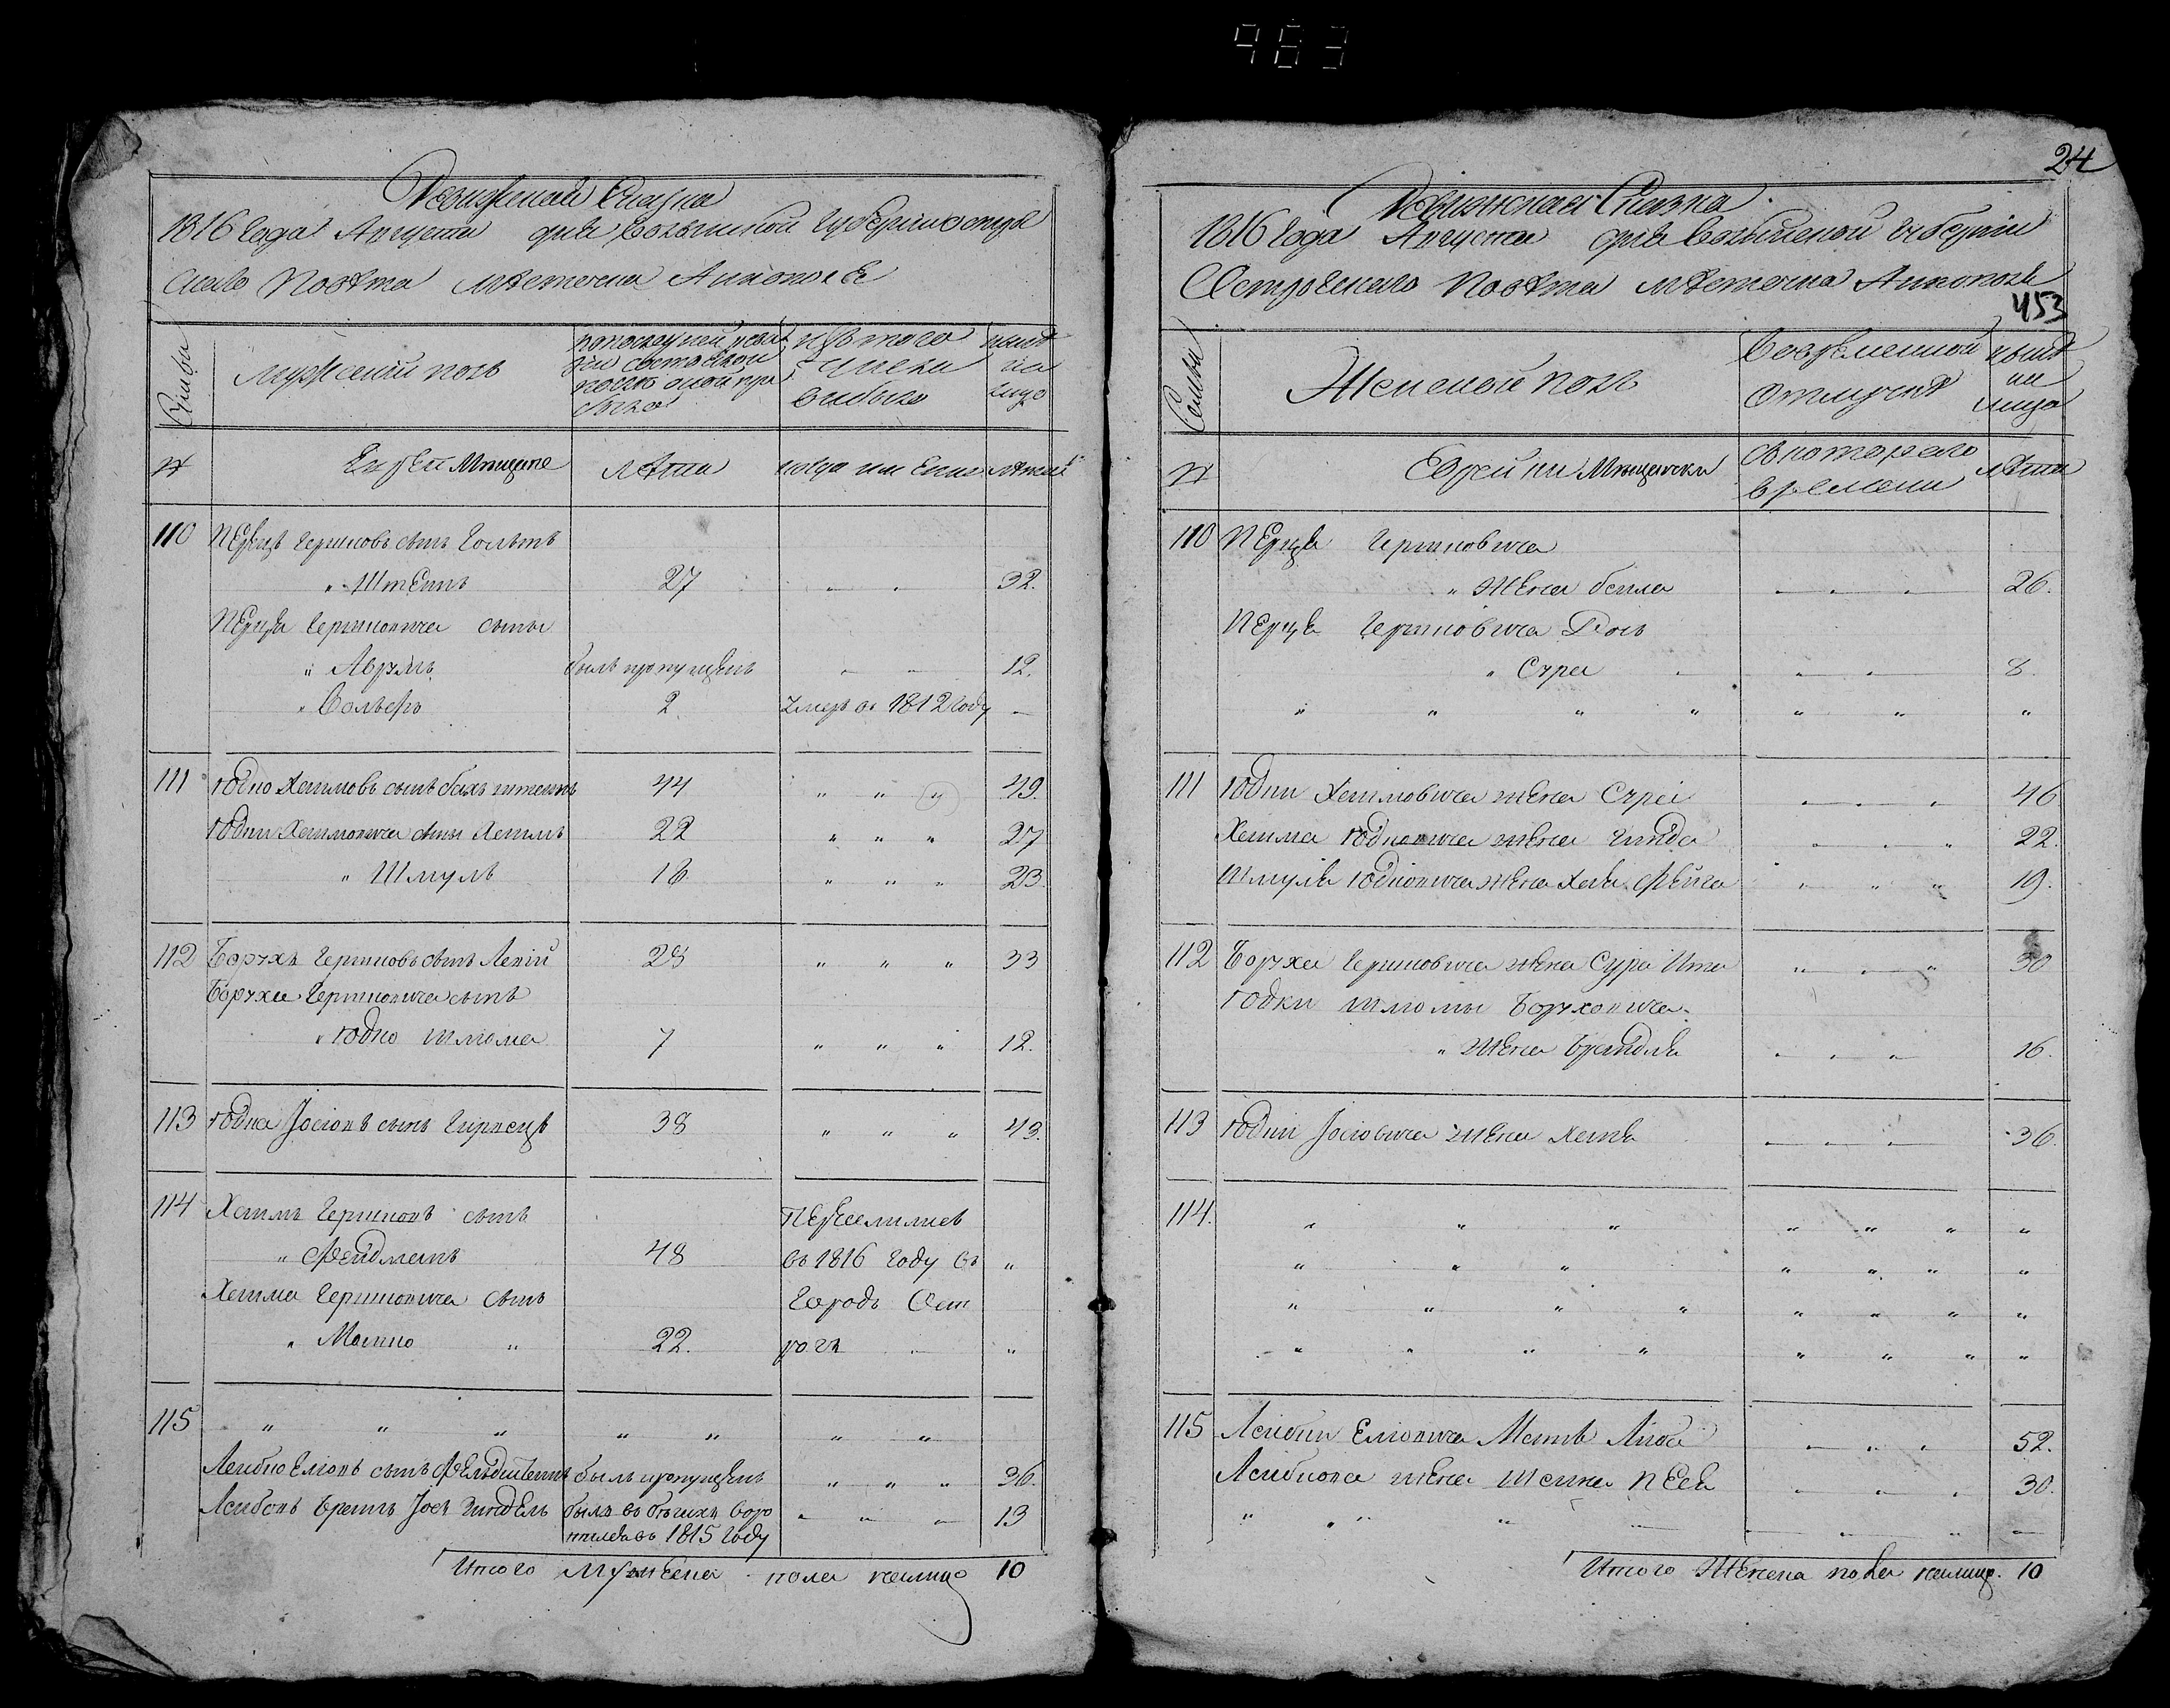 483
Ревижская Сказка
1816 года Августа дня Волынской Губернии Остро
скаго Повѣта мѣстечка Аннополя
Семьи
Мужеской полъ
по последней реви
зіи состояло и
после оной при
было
изъ того
числа
выбыло
нынѣ
на
лицо
№
Евреи Мещане
лѣта
когда имянно
лѣта
110 Перецъ Гершковъ сынъ Гольтъ
" Штейнъ 27 " " 32.
Перца Гершковича сыны
" Аврумъ былъ пропущенъ " " 12.
" Вольфъ 2 умеръ въ 1812 году —
111 Юдко Хаимовъ сынъ 44 " " " 49.
Юдки Хаимовича сыны Хаимъ 22 " " " 27
" Шмуль 18 " " " 23.
112 Борухъ Гершковъ сынъ 28 " " " 33
Боруха Гершковича сынъ
" Юдко Шлома 7 " " " 12.
113 Юдка Іосіовъ сынъ 38 " " " 43.
114 Хаимъ Гершковъ сынъ Переселился
" Фейдманъ 48 въ 1816 году въ "
Хаима Гершковича сынъ городъ Ост
" Мошко " 22. рогъ "
115 " " " " " " "
Лейбко Еліовъ сынъ былъ пропущенъ " " " 36.
Лейбовъ братъ Іось былъ въ бѣгахъ воро
тился въ 1815 году " " " 13
Итого Мужеска пола налицо 10
24
Ревижская Сказка
1816 года Августа дня Волынской Губерніи
Острожскаго Повѣта мѣстечка Аннополя
453
Семьи
Женской полъ
Во временной
отлучкѣ
нынѣ
на
лицо
№
Еврейки Мещански
съ котораго
времени
лѣта
110 Перца Гершковича
" жена Бейла " " " 26.
Перца Гершковича Дочь
" Сура " " 8.
" " " " " " "
111 Юдки Хаимовича жена Сура " " " 46
Хаима Юдковича жена Гинда " " " 22.
Шмуля Юдковича жена Хая Фейга " " " 19.
112 Боруха Гершковича жена Сура Ита " " " 30
Юдки Шломы Боруховича
" жена Брайндля " " " 16.
113 Юдки Іосіовича жена Ханя " " " 36.
114. " " " " " " "
" " " " " " "
" " " " " " " "
" " " " " " " "
115 Лейбки Еліовича Мать Либа " " " 52.
Лейбкова жена Шейна Песя " " " 30.
" " " " " " "
Итого Женска пола налицо. 10